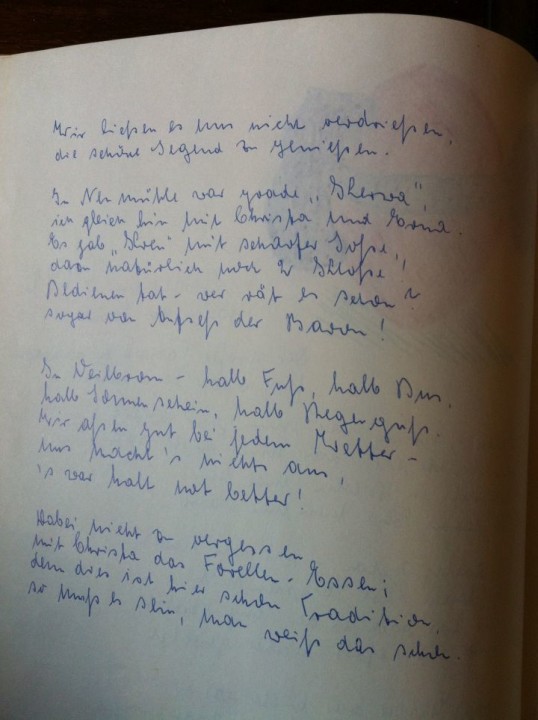 Wir ließen es uns nicht verdrießen,
die schöne Gegend zu genießen.
In Neumühle war grade „Kherwa",
ich gleich hin mit Christa und Erna.
Es gab „Khren" mit scharfer Soße,
dazu natürlich noch 2 Klöße
Bedienen tat - wer rät es schon?
sogar von Aufseß der Baron!
In Veilbronn - halb Fuß, halb Bus,
halb Sonnenschein, halb Regenguß.
Wir aßen gut bei jedem Wetter -
uns macht's nichts aus,
's war halt not better!
Dabei nicht zu vergessen
mit Christa das Forellen-Essen;
denn dies ist hier schon Tradition,
so muß es sein, man weiß das schon.